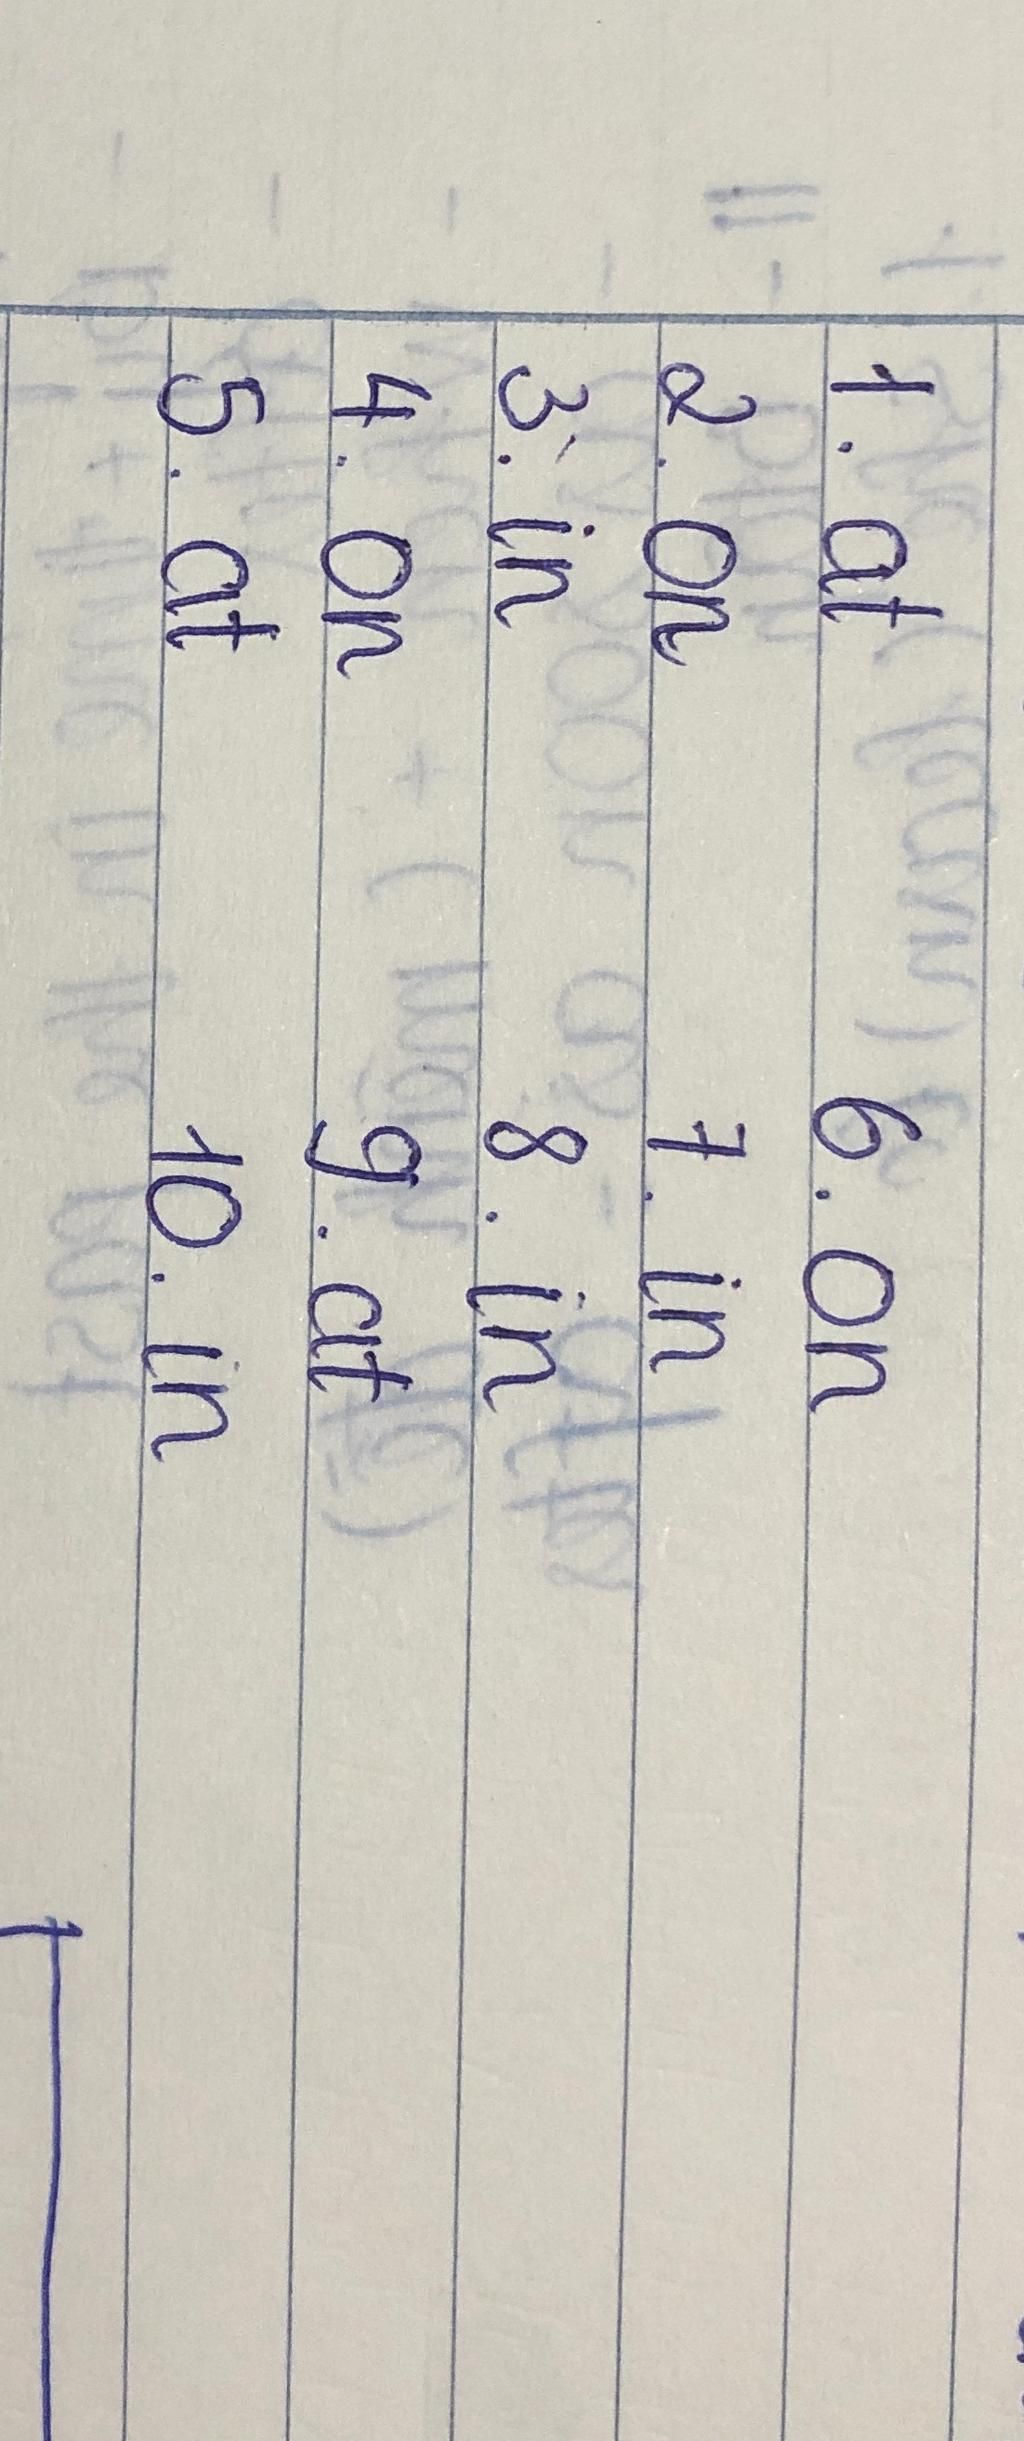 1. at 6. on
2. on 7. in
3. in 8. in
4. on 9. at
5. at 10. in